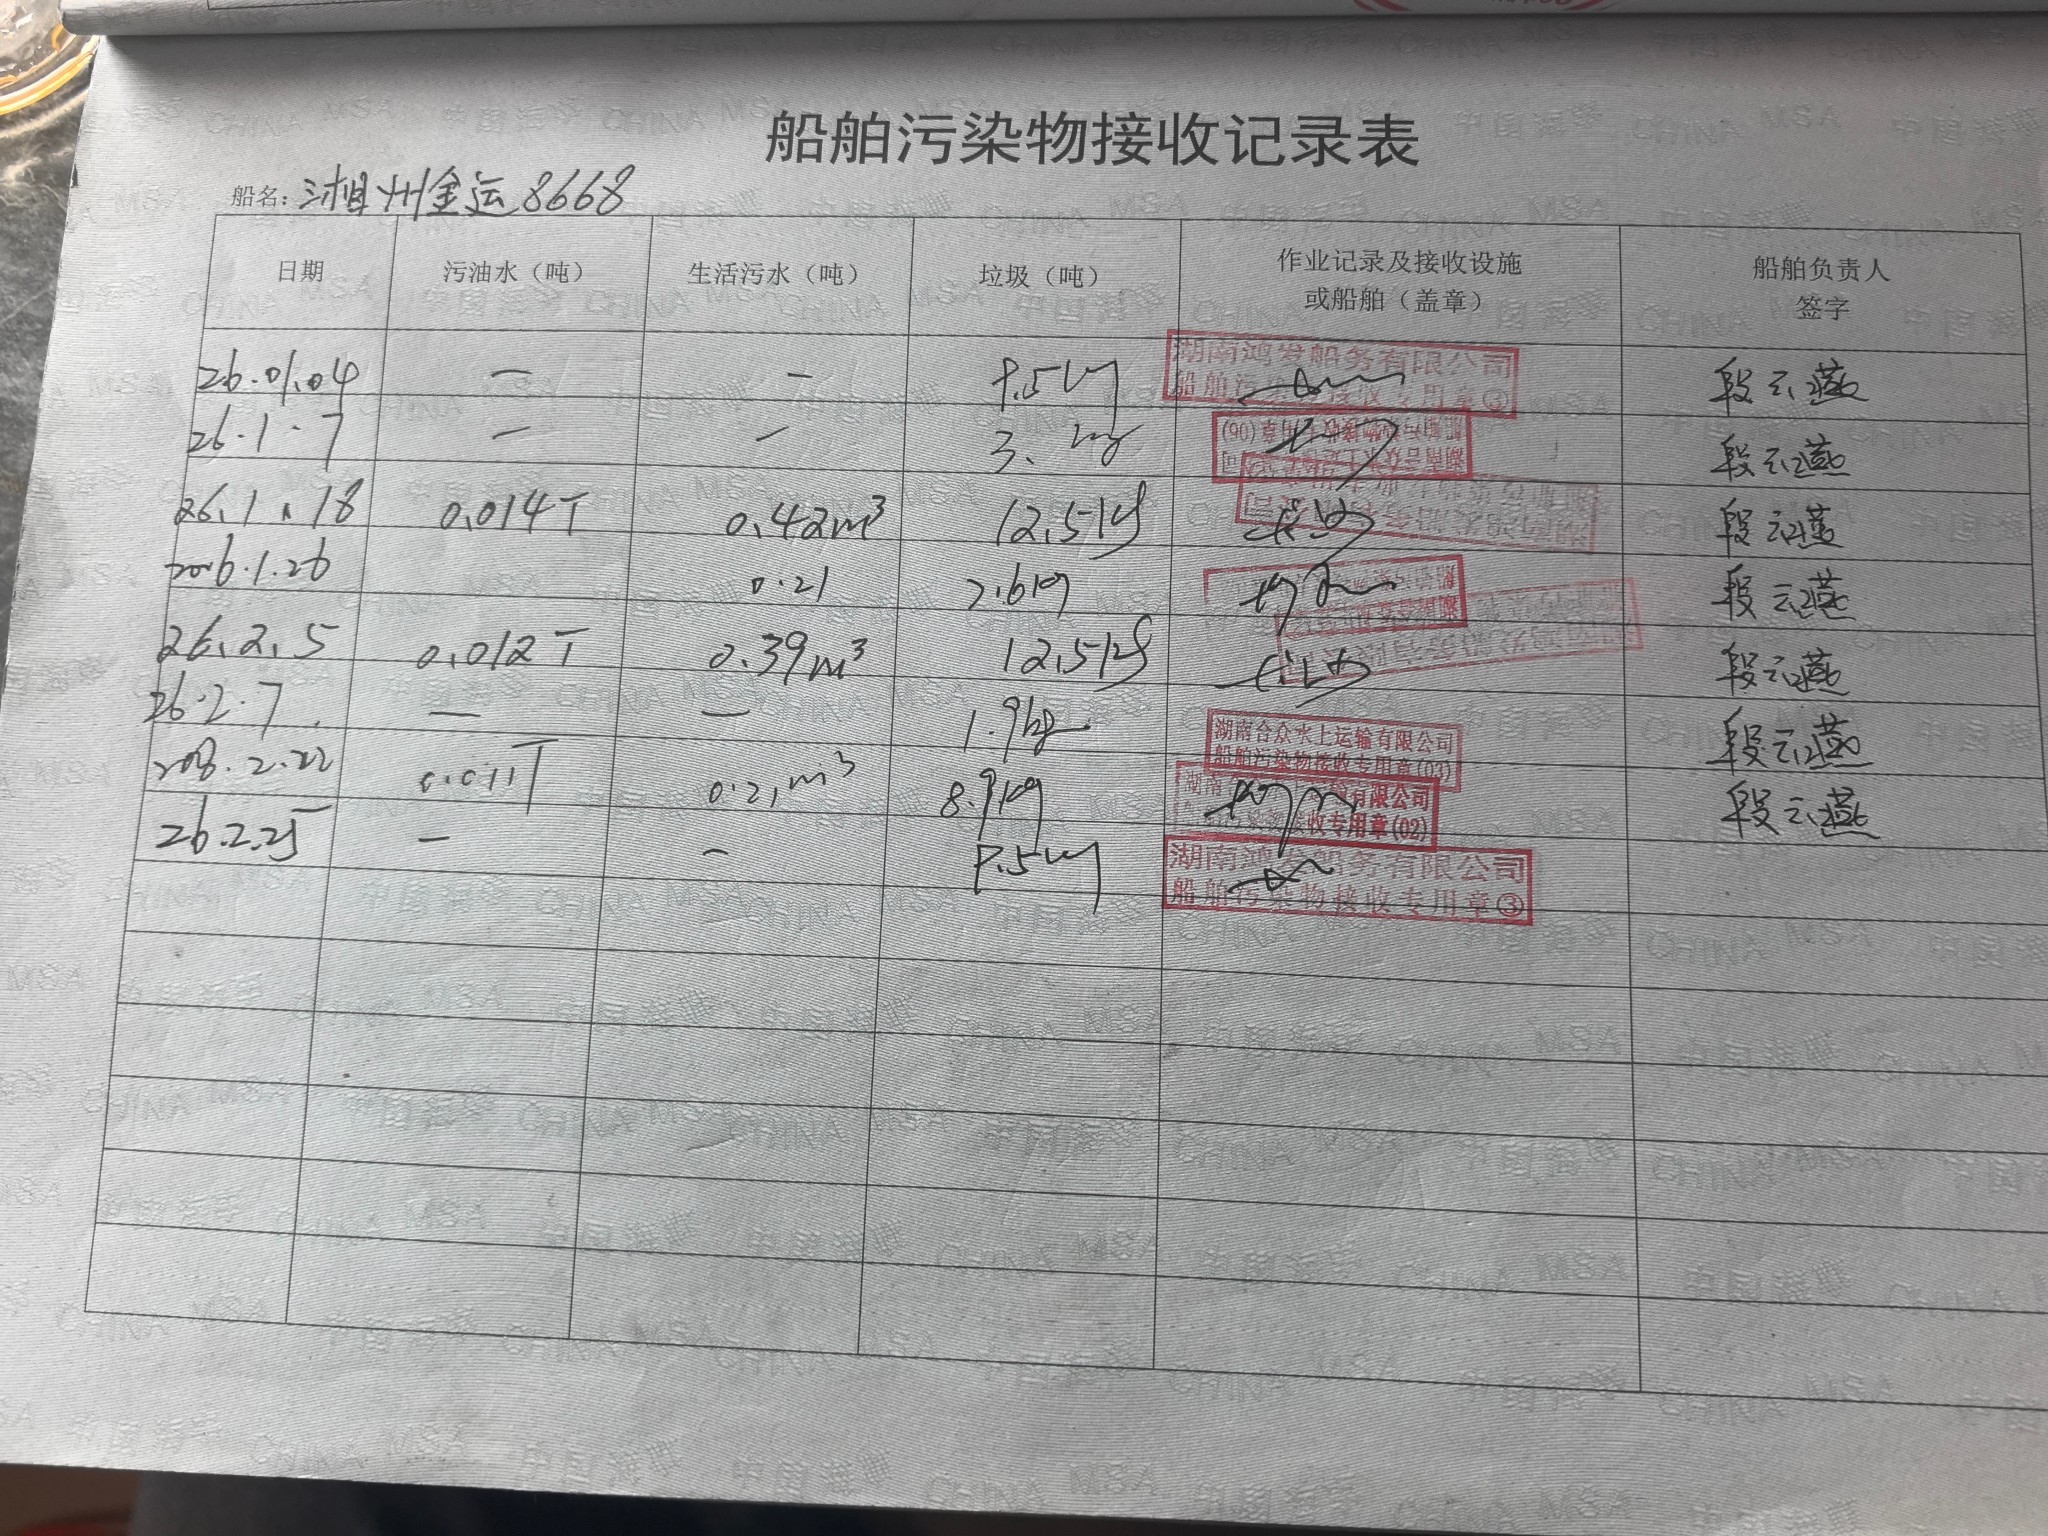 船舶污染物接收记录表
船名: 湘州金运8668
日期 污油水（吨） 生活污水（吨） 垃圾（吨） 作业记录及接收设施或船舶（盖章） 船舶负责人签字
26.01.04 — — 湖南鸿发船务有限公司 船舶污染物接收专用章③ 段云燕
26.1.7 — — 段云燕
26.1.18 0.014T 0.42m³ 12.5kg 段云燕
2026.1.26 0.21 2.6kg 段云燕
26.2.5 0.012T 0.39m³ 12.5kg 段云燕
26.2.7 — — 1.9kg 湖南合众水上运输有限公司 船舶污染物接收专用章(03) 段云燕
2026.2.22 0.011T 0.21m³ 8.9kg 有限公司 接收专用章(02) 段云燕
26.2.25 — — 湖南鸿发船务有限公司 船舶污染物接收专用章③